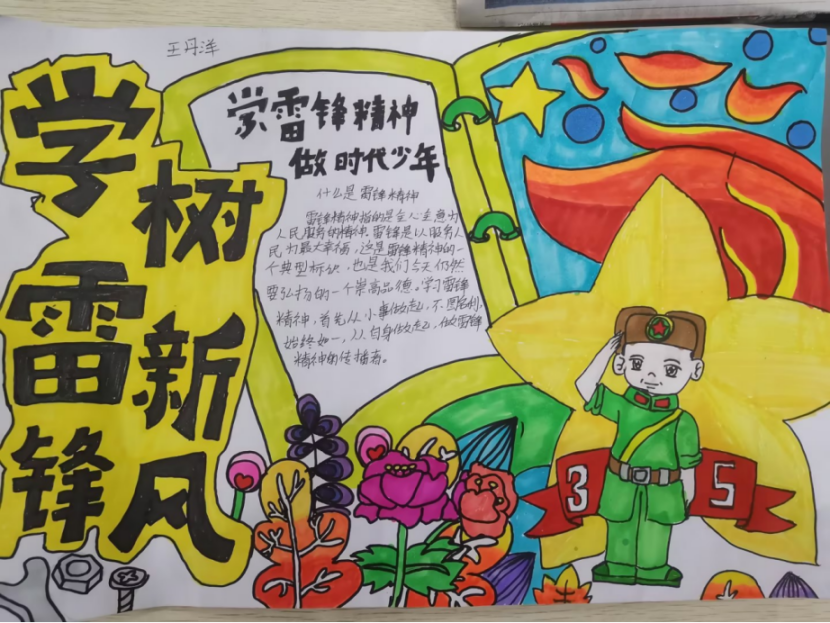 王丹洋
学雷锋
树新风
学雷锋精神
做时代少年
什么是雷锋精神
雷锋精神指的是全心全意为
人民服务的精神。雷锋是以服务人
民为最大幸福，这是雷锋精神的一
个典型标识，也是我们今天仍然
要弘扬的一个崇高品德。学习雷锋
精神，首先从小事做起，不图名利，
始终如一，从自身做起，做雷锋
精神的传播者。
3 5